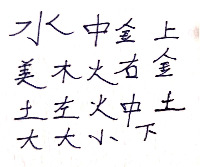 水中金上
美木火右金
土左火中土
大大小下